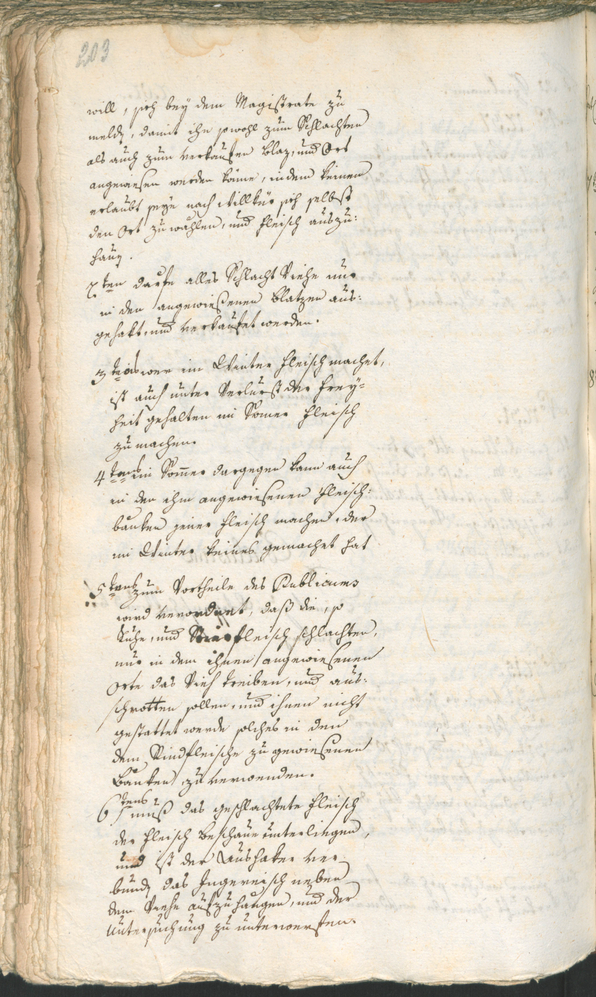 203
will, sich bey dem Magistrate zu
melden, damit ihm sowohl zum Schlachten
als auch zum verkaufen Blaz, und Ort
angewiesen werden könne, indem keinem
erlaubt seye nach Willkür sich selbst
den Ort zu wählen, und Fleisch auszu-
hauen.
2ten darfe alles Schlacht Viehe nur
in den angewiesenen Blatzen aus-
gehakt, und verkaufet werden.
3tens wer im Winter Fleisch machet,
ist auch unter Verlurst der Frey-
heit gehalten im Somer Fleisch
zu machen.
4tens im Sommer dargegen kann auch
in der ihm angewiesenen Fleisch-
banken jener Fleisch machen, der
im Winter keines gemachet hat
5tens zum Vortheile des Publicums
wird verordnet, daß die, so
Kühe, und fleisch schlachten,
nur in dem ihnen angewiesenen
Orte das Vieh treiben, und aus-
schrotten sollen, und ihnen nicht
gestattet werde solches in den
dem Rindfleische zugewiesenen
Banken zu verwenden.
6tens muß das geschlachtete Fleisch
der Fleisch Beschaue unterliegen,
und ist der Aushaker ver-
bunden das Ingereisch neben
dem Viehe aufzuhangen, und der
Untersuchung zu unterwerfen.